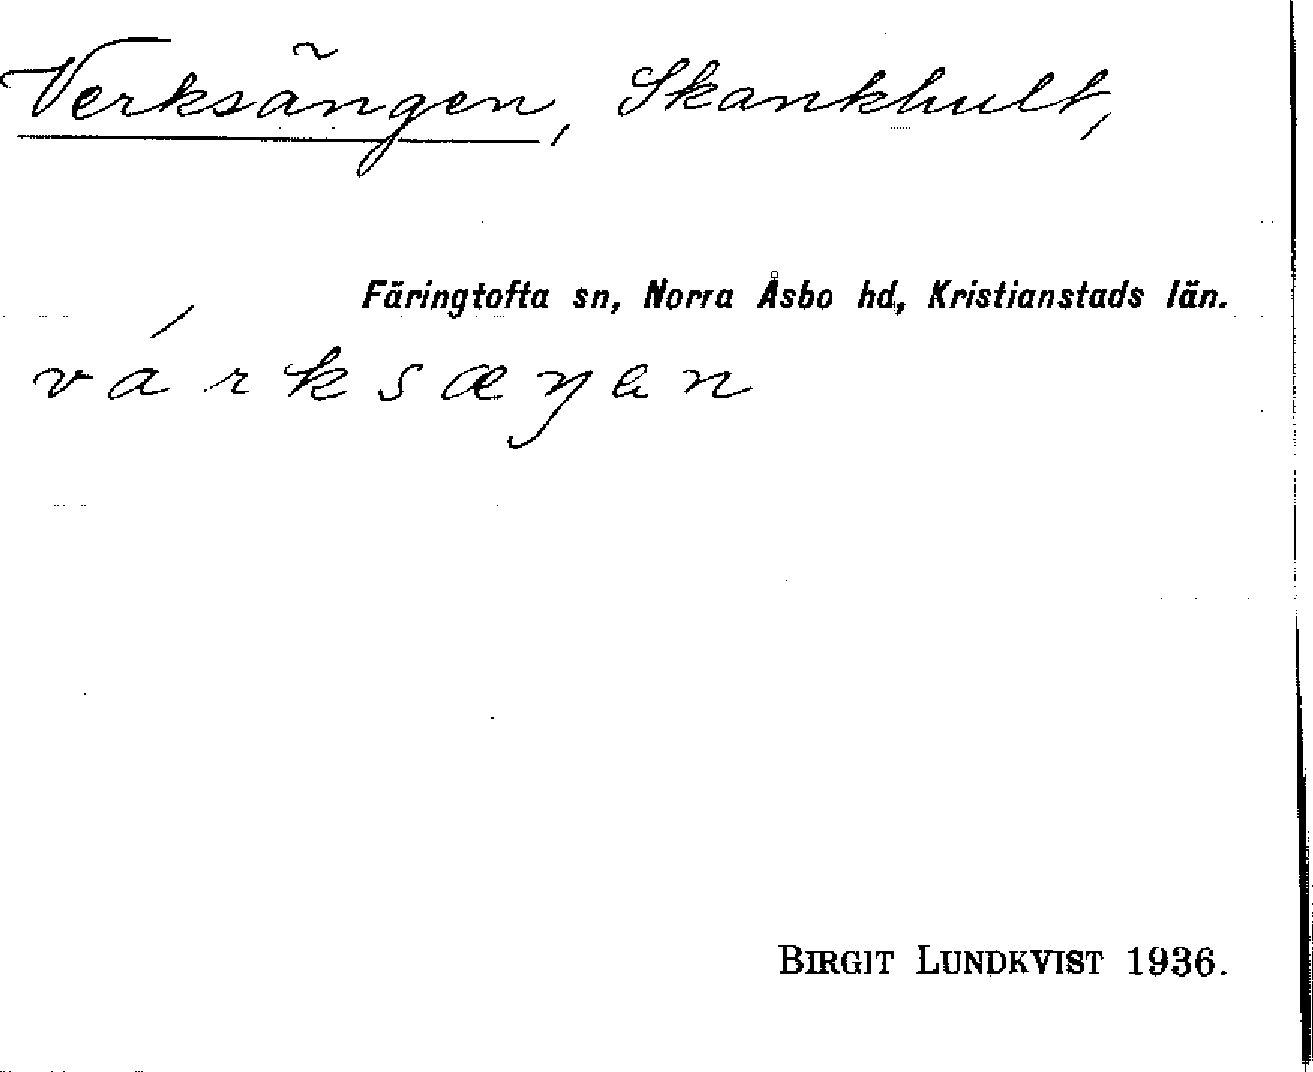 Verksängen, Skankhult,
Färingtofta sn, Norra Åsbo hd, Kristianstads län.
várksæŋen
BIRGIT LUNDKVIST 1936.